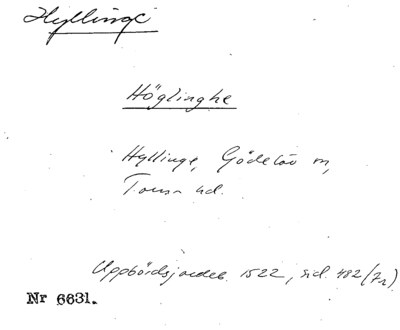 Hyllinge
Höglinghe
Hyllinge, Gödelöv sn,
Torna hd.
Uppbördsjordeb. 1522, sid. 482 (7r)
Nr 6631.